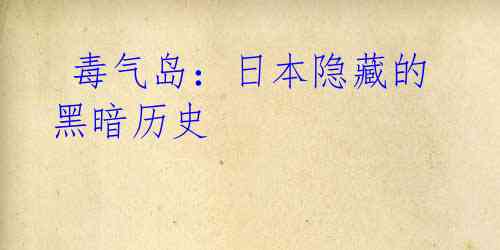 毒气岛：日本隐藏的
黑暗历史